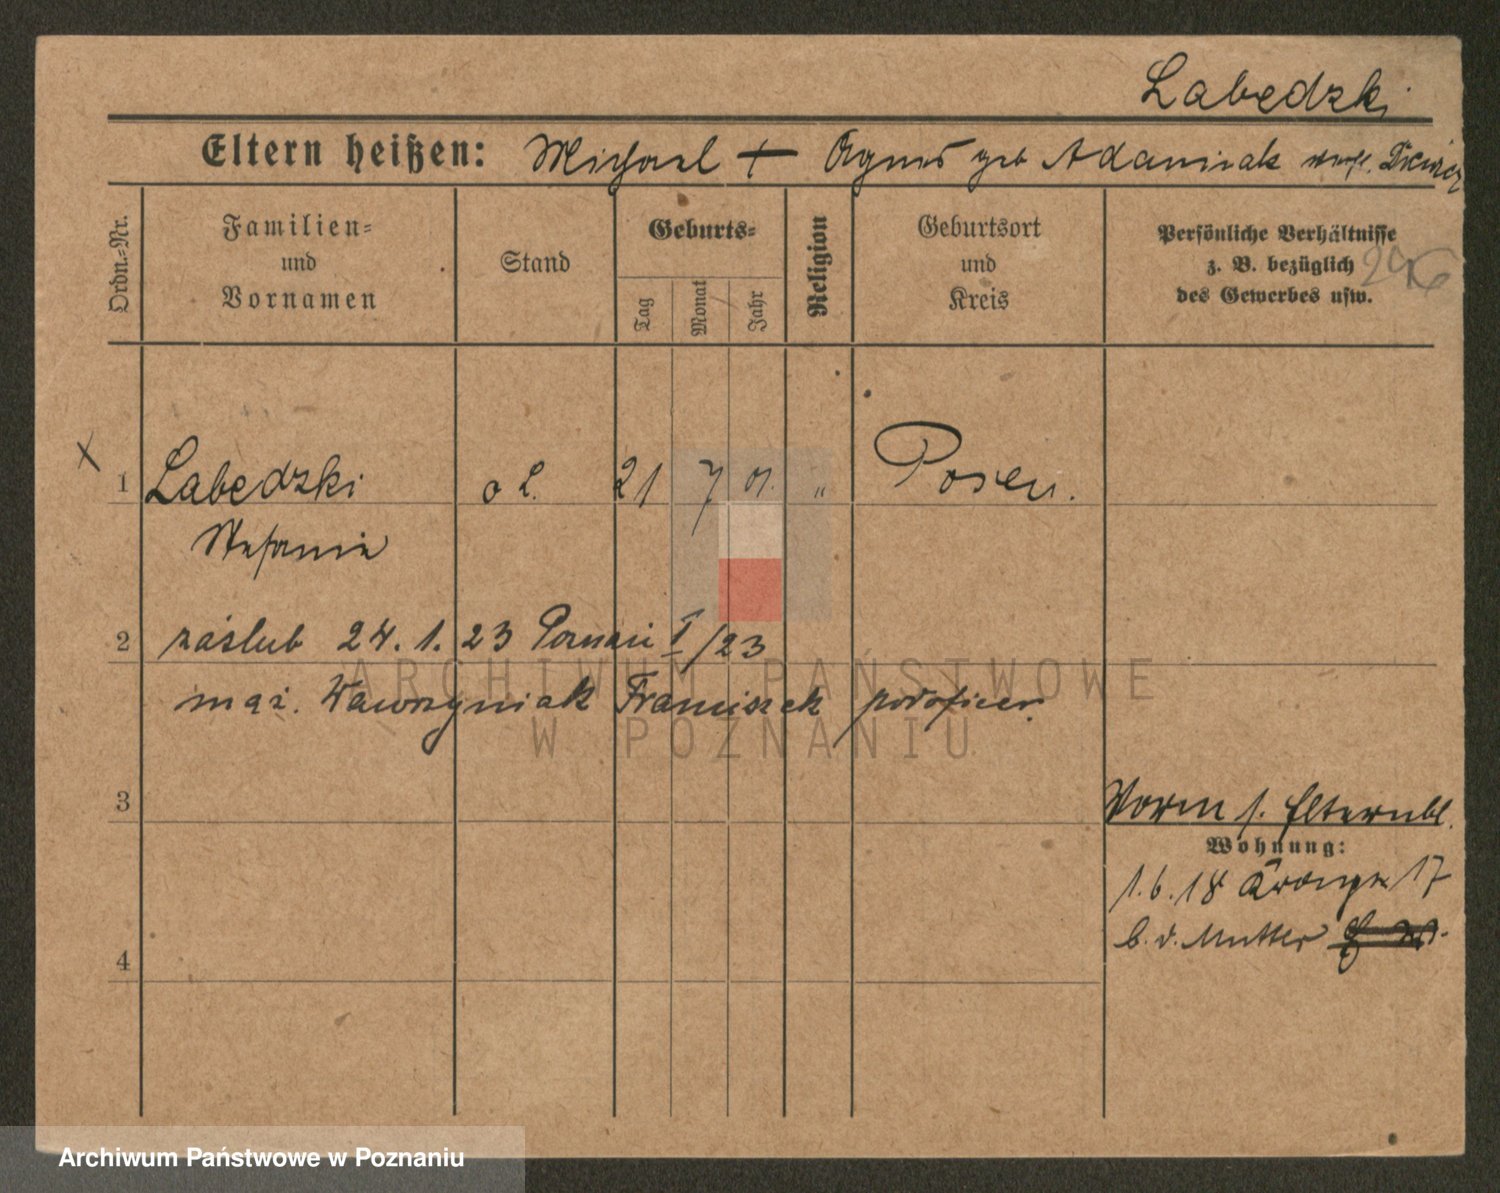 Labedzki
Eltern heißen: Michael + Agnes geb Adamiak
Ordn.=Nr.
Familien=
und
Vornamen
Stand
Geburts=
Tag
Monat
Jahr
Religion
Geburtsort
und
Kreis
Persönliche Verhältnisse
z. B. bezüglich
des Gewerbes usw.
x
1 Labedzki o L. 21 7 01. " Posen.
Stefanie
2 záslub 24. 1. 23 Poznań I/23
mąż. Wawrzyniak Franciszek podoficer
3
Vorm s. Elternbl.
Wohnung:
1.6.18 17
b. d. Mutter
4
ARCHIWUM PAŃSTWOWE
W POZNANIU
Archiwum Państwowe w Poznaniu